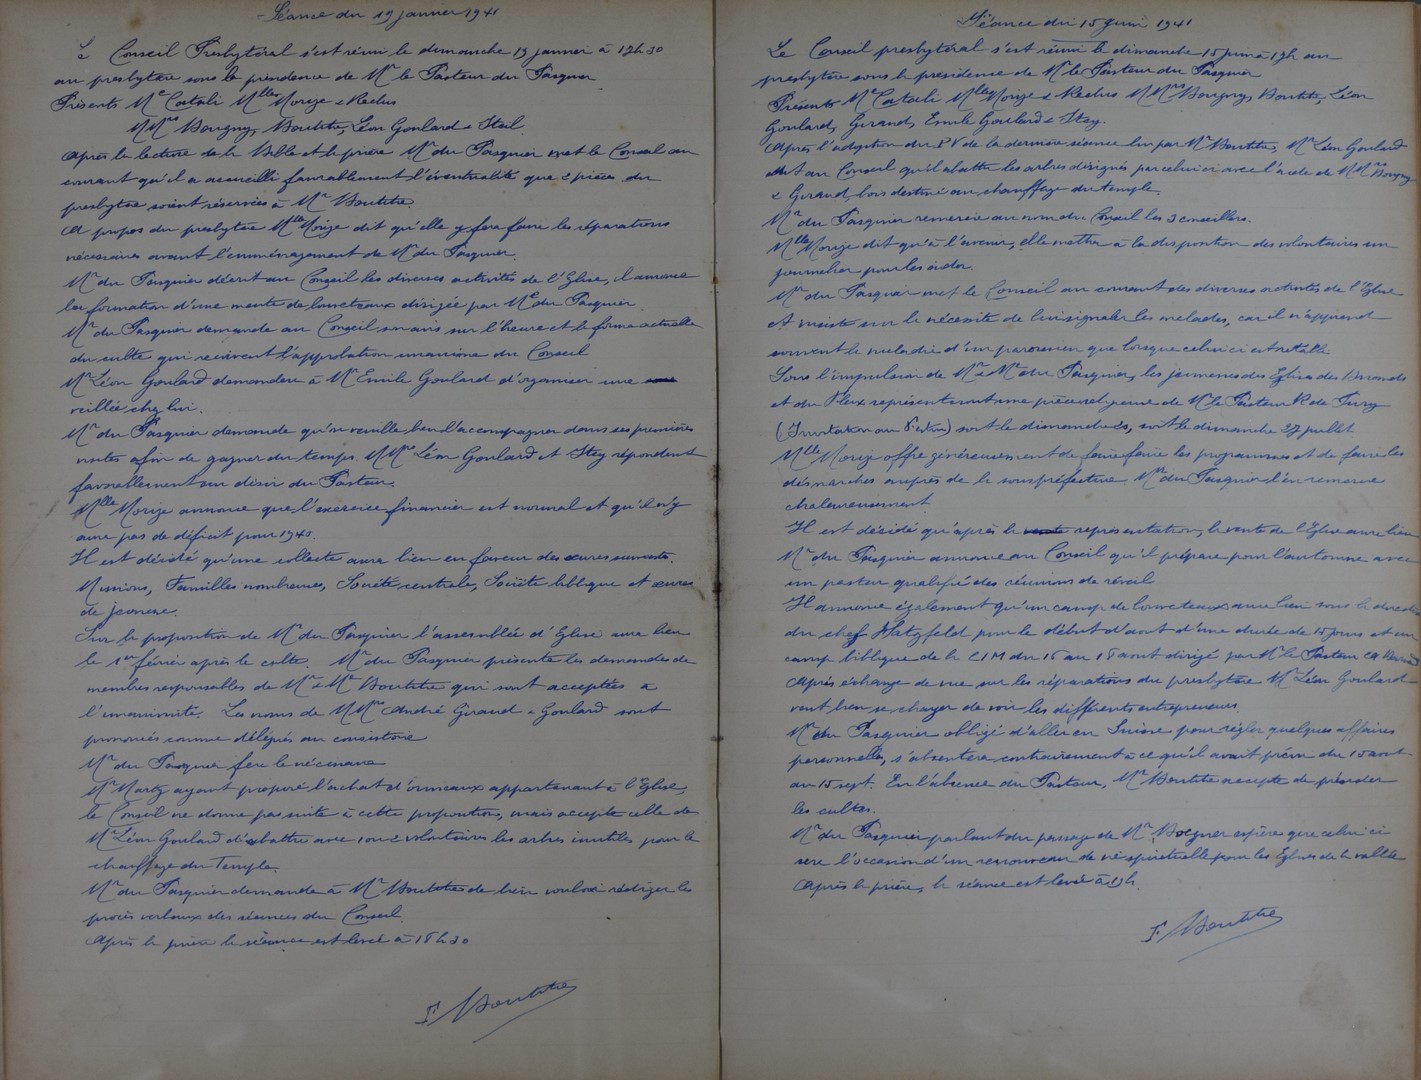 Séance du 19 janvier 1941
Le Conseil Presbytéral s'est réuni le dimanche 19 janvier à 17h30
au presbytère sous la présidence de Mr le Pasteur du Pasquier
Présents Me Castali Mlles Morize & Reclus
MMrs Bougny, Boutitie, Léon Goulard & Steil
Après la lecture de la Bible et la prière Mr du Pasquier met le Conseil au
courant qu'il a accueilli favorablement l'éventualité que 2 pièces du
presbytère soient réservées à Mr Boutitie.
A propos du presbytère Mlle Morize dit qu'elle y fera faire les réparations
nécessaires avant l'emménagement de Mr du Pasquier.
Mr du Pasquier décrit au Conseil les diverses activités de l'Eglise, il annonce
la formation d'une meute de louveteaux dirigée par Me du Pasquier
Mr du Pasquier demande au Conseil son avis sur l'heure et la forme actuelle
du culte qui reçoivent l'approbation unanime du Conseil
Mr Léon Goulard demandera à Mr Emile Goulard d'organiser une
veillée chez lui.
Mr du Pasquier demande qu'on veuille bien l'accompagner dans ses premières
visites afin de gagner du temps MMrs Léon Goulard et Stey répondent
favorablement au désir du Pasteur.
Mlle Morize annonce que l'exercice financier est normal et qu'il n'y
aura pas de déficit pour 1940.
Il est décidé qu'une collecte aura lieu en faveur des œuvres suivantes.
Missions, Familles nombreuses, Société centrale, Société biblique et œuvres
de jeunesse.
Sur la proposition de Mr du Pasquier l'assemblée d'Eglise aura lieu
le 1er février après le culte. Mr du Pasquier présente les demandes de
membres responsables de Mr & Me Boutitie qui sont acceptées à
l'unanimité. Les noms de MMrs André Giraud & Goulard sont
prononcés comme délégués au consistoire
Mr du Pasquier fera le nécessaire
Mr Martz ayant proposé l'achat d'ormeaux appartenant à l'Eglise,
le Conseil ne donne pas suite à cette proposition, mais accepte celle de
Mr Léon Goulard d'abattre avec 1 ou 2 volontaires les arbres inutiles pour le
chauffage du Temple.
Mr du Pasquier demande à Mr Boutitie de bien vouloir rédiger les
procès verbaux des séances du Conseil.
Après la prière la séance est levée à 18h30
F Boutitie
Séance du 15 juin 1941
Le Conseil presbytéral s'est réuni le dimanche 15 juin à 17h au
presbytère sous la présidence de Mr le Pasteur du Pasquier
Présents Me Castali Mlles Morize & Reclus MMrs Bougny, Boutitie, Léon
Goulard, Giraud, Emile Goulard & Stey.
Après l'adoption du PV de la dernière séance lu par Mr Boutitie, Mr Léon Goulard
dit au Conseil qu'il abattra les arbres désignés par celui ci avec l'aide de MMrs Bougny
& Giraud, bois destiné au chauffage du temple.
Mr du Pasquier remercie au nom du Conseil les 3 conseillers.
Mlle Morize dit qu'à l'avenir, elle mettra à la disposition des volontaires un
journalier pour les aider.
Mr du Pasquier met le Conseil au courant des diverses activités de l'Eglise
et insiste sur la nécessité de lui signaler les malades, car il n'apprend
souvent la maladie d'un paroissien que lorsque celui ci est rétabli
Sous l'impulsion de Mr & Me du Pasquier, les jeunesses des Eglises des
et du représenteront une pièce religieuse de Mr le Pasteur R de Pury
(Invitation au ) soit le dimanche, soit le dimanche 27 juillet
Mlle Morize offre généreusement de faire faire les programmes et de faire les
démarches auprès de la sous préfecture Mr du Pasquier l'en remercie
chaleureusement
Il est décidé qu'après la représentation, la vente de l'Eglise aura lieu
Mr du Pasquier annonce au Conseil qu'il prépare pour l'automne avec
un pasteur qualifié des réunions de réveil
Il annonce également qu'un camp de louveteaux aura lieu sous la direction
du chef Hatzfeld pour le début d'août d'une durée de 15 jours et un
camp biblique de la du 16 au 18 août dirigé par Mr le Pasteur
Après échange de vue sur les réparations du presbytère Mr Léon Goulard
veut bien se charger de voir les différents entrepreneurs.
Mr du Pasquier obligé d'aller en Suisse pour régler quelques affaires
personnelles, s'absentera contrairement à ce qu'il avait prévu du 15 août
au 15 sept. En l'absence du Pasteur, Mr Boutitie accepte de présider
les cultes.
Mr du Pasquier parlant du passage de Mr Boegner espère que celui ci
sera l'occasion d'un renouveau de vie spirituelle pour les Eglises de la vallée
Après la prière, la séance est levée à 19h.
F Boutitie